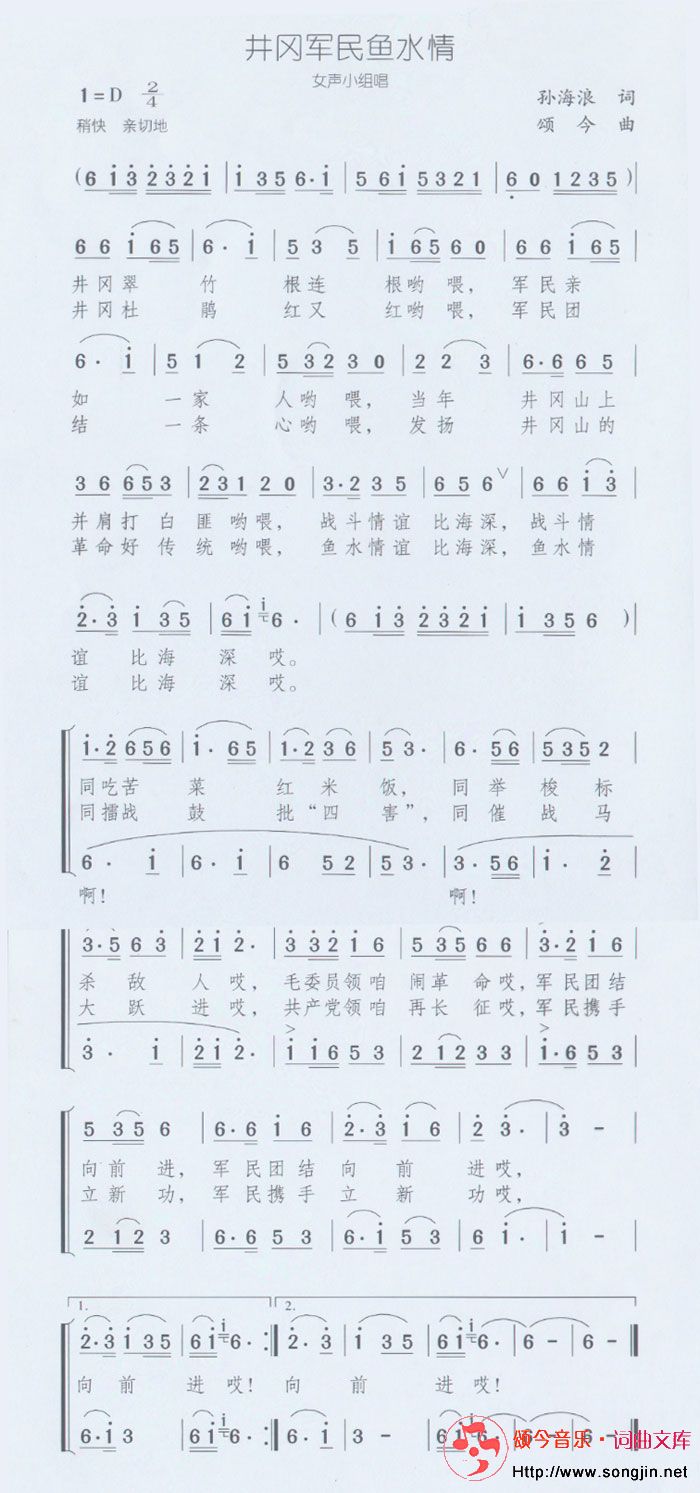 井冈军民鱼水情
女声小组唱
1=D 2/4
孙海浪 词
稍快 亲切地
颂今 曲
(6 i3 2321 | i 35 6·i | 5 6i 5321 | 6 0 1235 ) |
6 6 i 65 | 6· i | 5 3 5 | i 65 60 | 6 6 i 65 |
井冈翠 竹 根连 根哟喂， 军民亲
井冈杜 鹃 红又 红哟喂， 军民团
6· i | 5 1 2 | 5 323 0 | 2 2 3 | 6·6 6 5 |
如 一家 人哟喂， 当年 井冈山上
结 一条 心哟喂， 发扬 井冈山的
3 6 653 | 231 20 | 3·2 35 | 656 ∨ | 66 i3 |
并肩打 白匪哟喂， 战斗情谊 比海深， 战斗情
革命好 传统哟喂， 鱼水情谊 比海深， 鱼水情
2·3 i 35 | 6i 6· | (6 i3 2321 | i 356 ) |
谊 比海 深哎。
谊 比海 深哎。
i·2 656 | i· 65 | i·2 36 | 53· | 6· 56 | 5352 |
同吃苦 菜 红米 饭， 同举梭标
同擂战 鼓 批“四害”， 同催战马
6· i | 6· i | 6 52 | 53· | 3·56 | i· 2 |
啊！ 啊！
3·5 63 | 2i2· | 3 32i6 | 5 3566 | 3·2i6 |
杀敌 人哎， 毛委员领咱 闹革命哎， 军民团结
大跃 进哎， 共产党领咱 再长征哎， 军民携手
3· i | 2i2· | i i653 | 2 1233 | i·653 |
5 356 | 6·6i6 | 2·3i6 | 23· | 3 - |
向前进， 军民团结 向前 进哎，
立新功， 军民携手 立新 功哎，
2 123 | 6·653 | 6·i53 | 6i· | i - |
1. 2.
2·3i35 | 6i6· :| 2·3 | i 35 | 6i6· | 6 - |
向前 进哎！ 向 前 进哎！
6·i3 | 6i6· :| 6·i | 3 - | 6i6· | 6 - |
颂今音乐·词曲文库
Http://www.songjin.net